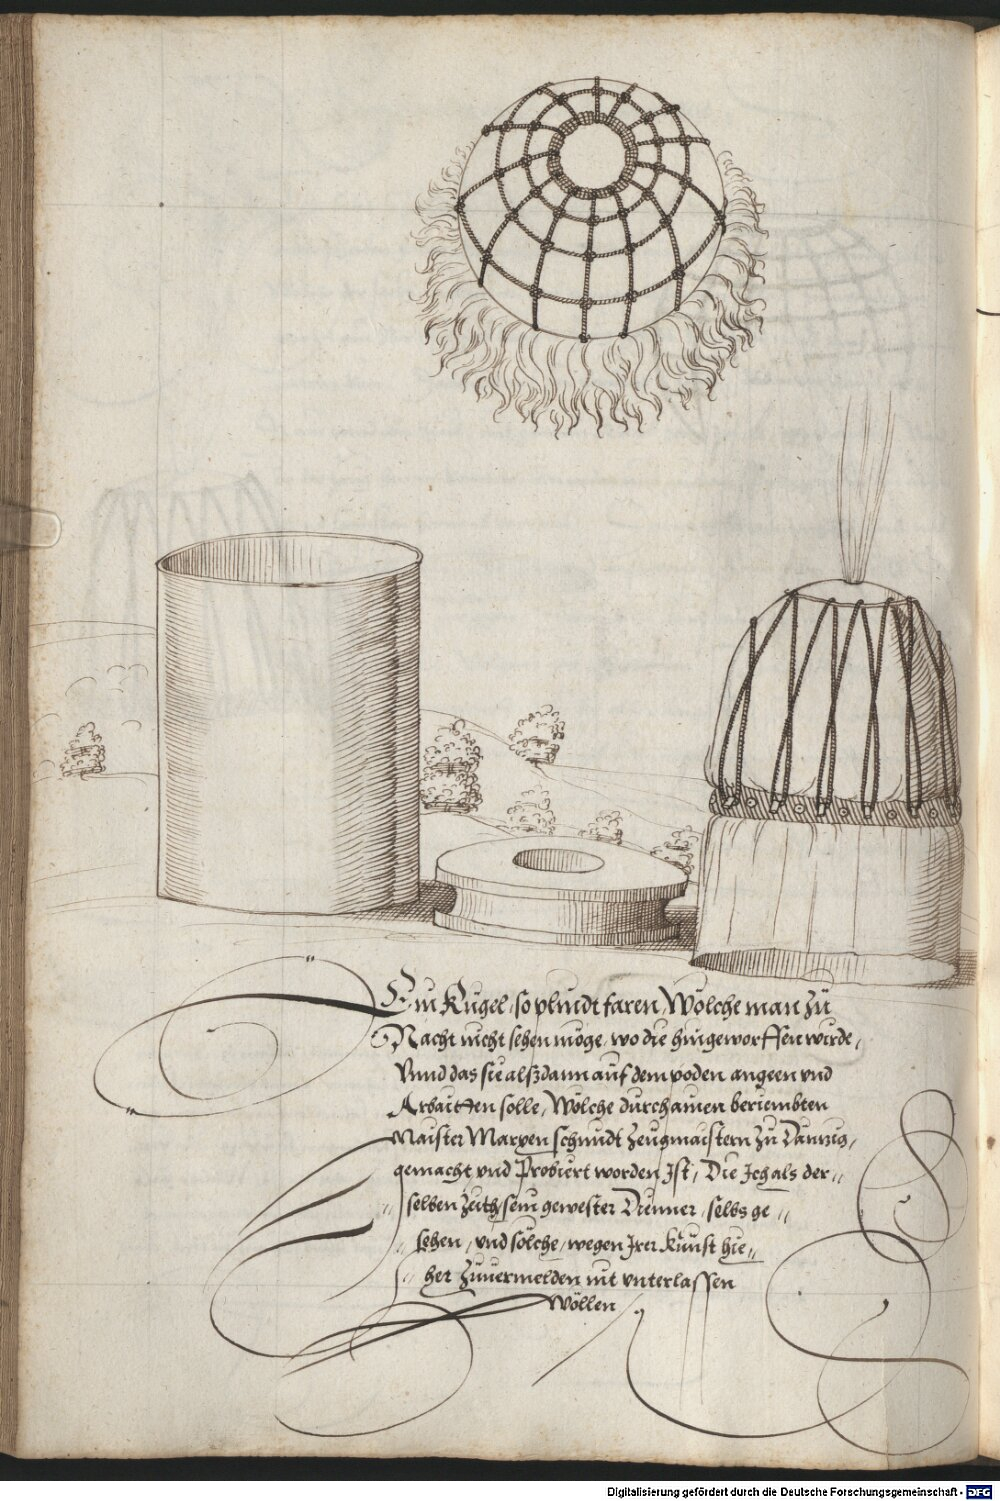 Ein Kugel, so plindt faren, Wölche man zü
Nacht nicht sehen möge, wo die hingeworffen wurde,
Vnnd das sie alßdann auf dem poden angeen vnd
Arbaitten solle, Wölche durch ainen beriembten
Maister Marxen schmidt Zeugmaistern zu Dannzig,
gemacht vnd Probiert worden Ist, Die Ich als der„
selben Zeith sein gewester Diener, selbs ge„
sehen, vnd sölche, wegen Irer Kunst hie„
her Zuuermelden nit vnterlassen
Wöllen
Digitalisierung gefördert durch die Deutsche Forschungsgemeinschaft - DFG